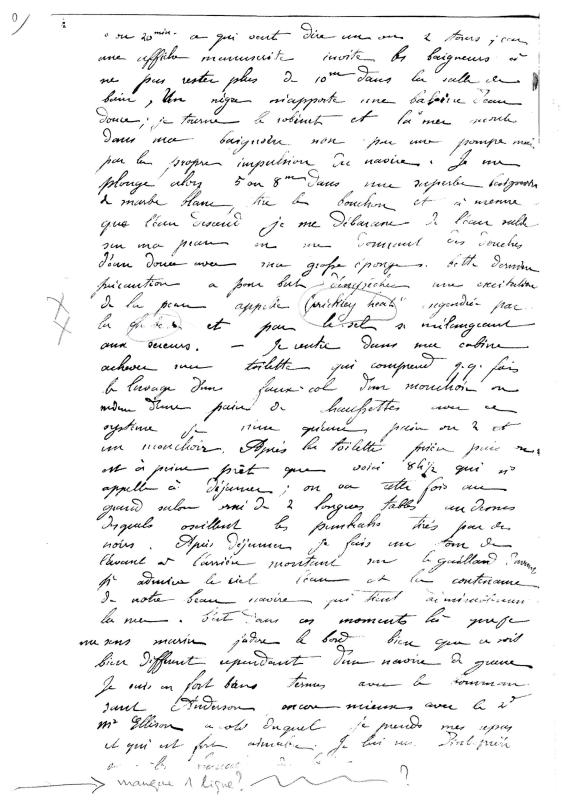 ou 20 min. ce qui veut dire un ou 2 tours, car
une affiche manuscrite invite les baigneurs à
ne pas rester plus de 10 m dans la salle de
bain, Un nègre m'apporte une baignoire d'eau
douce; je tourne le robinet et la mer monte
dans ma baignoire non par une pompe mais
par la propre impulsion du navire. Je me
plonge alors 5 ou 8 m dans une superbe baignoire
de marbre blanc, tire le bouchon et à mesure
que l'eau descend je me débarasse de l'eau salée
sur ma peau en me donnant des douches
d'eau douce avec ma grosse éponge. Cette dernière
précaution a pour but d'empêcher une excitation
de la peau appelée prickley heat engendrée par
la et par le sel se mélangeant
aux sueurs. — Je rentre dans ma cabine
achever ma toilette qui comprend q.q. fois
le lavage d'un faux-col d'un mouchoir ou
même d'une paire de chaussettes avec ce
système je n'use qu'une paire ou 2 et
un mouchoir. Après la toilette prière puis
est à peine prêt que voici 8h½ qui
appelle à déjeuner; on va cette fois au
grand salon orné de 2 longues tables au dessus
desquels oscillent les punkahs tirés par des
noirs. Après déjeuner je fais un tour de
l'avant à l'arrière montant sur le gaillard d'avant
j'admire le ciel l'eau et la contenance
de notre beau navire qui tient admirablement
la mer. C'est dans ces moments là que je
me sens marin j'adore le bord bien que ce soit
bien différent cependant d'un navire de guerre
Je suis en fort bons termes avec le comman
dant Anderson encore mieux avec le 2d
Mr Ellison à coté duquel je prends mes repas
et qui est fort aimable. Je lui
manque 1 ligne? ?